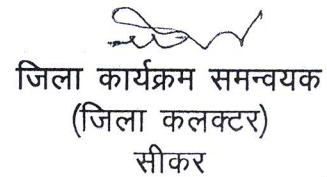 जिला कार्यक्रम समन्वयक
(जिला कलक्टर)
सीकर